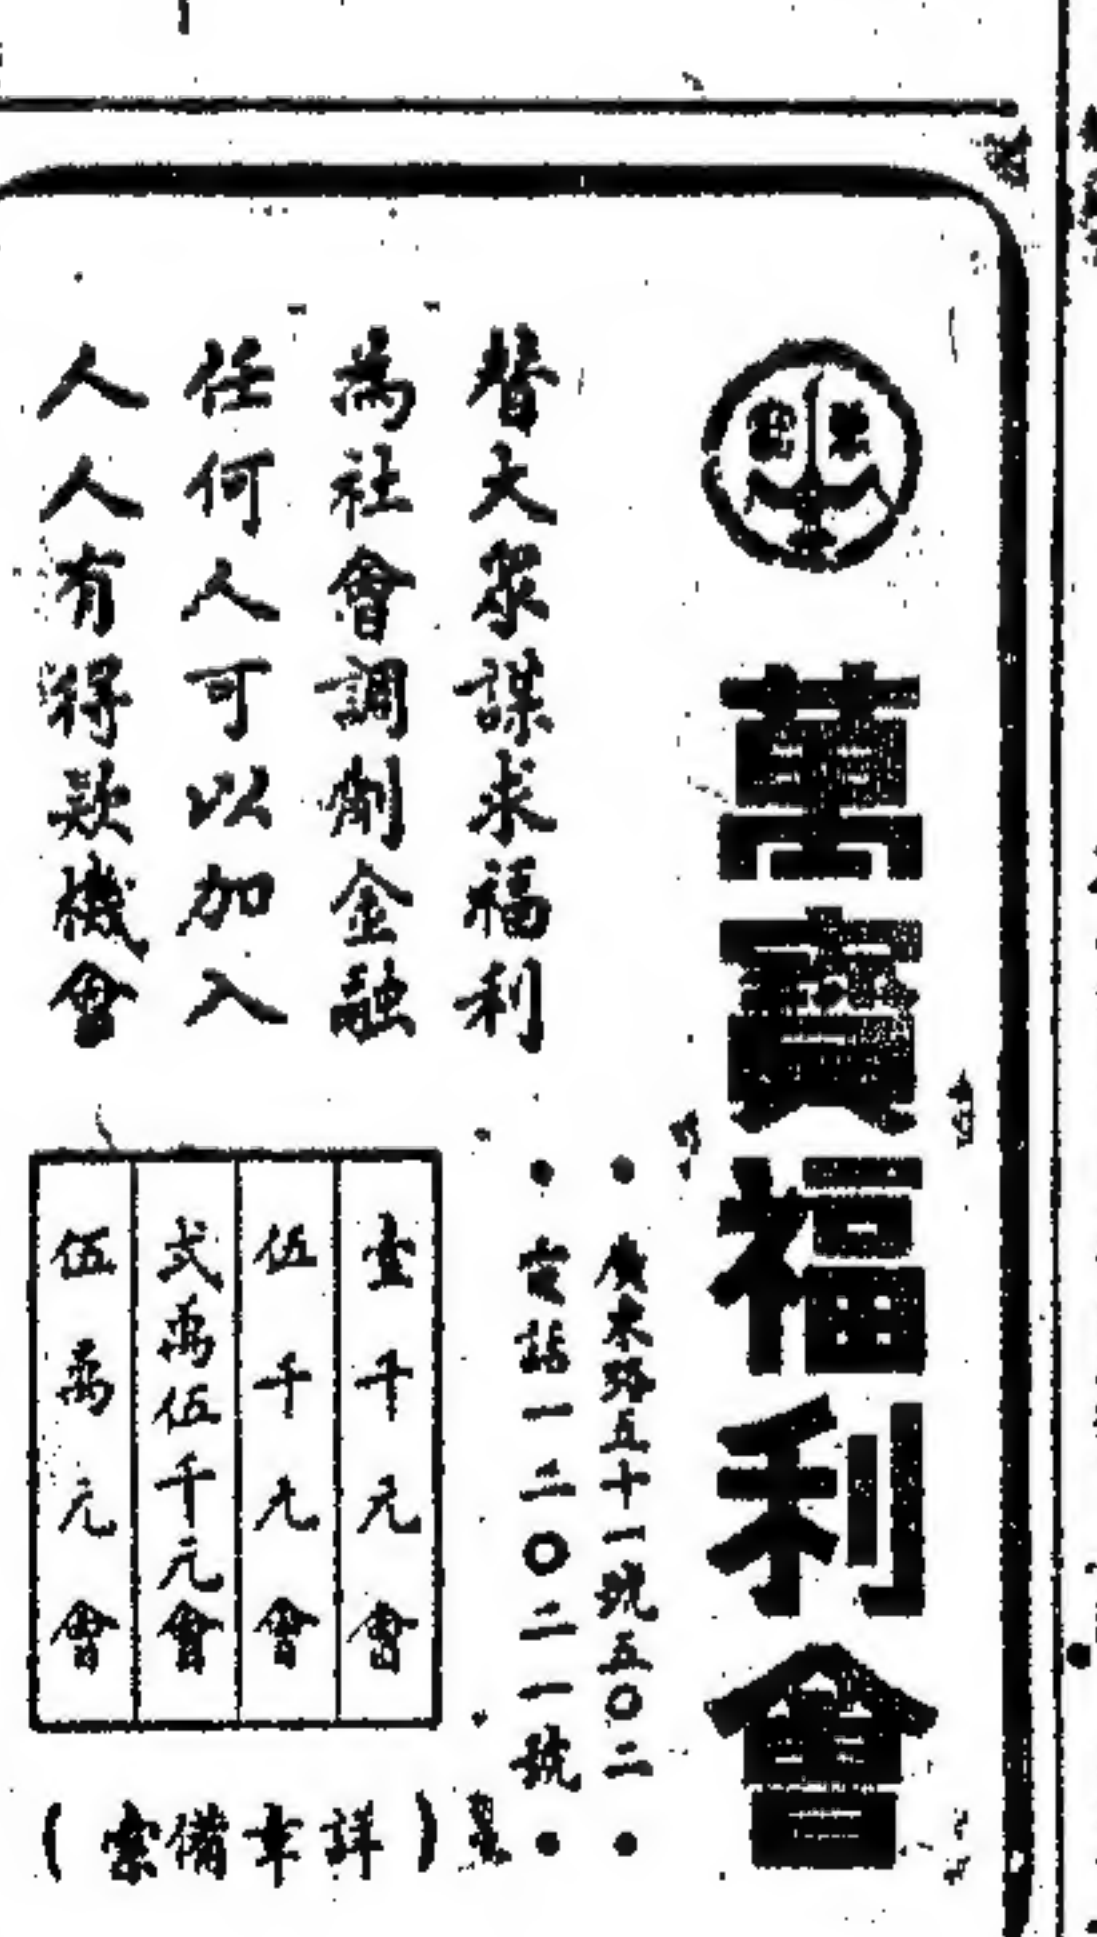 萬寶福利會
廣東路五十一號五〇二
電話一二〇二一號
替大衆謀求福利
為社會調劑金融
任何人可以加入
人人有得款機會
壹千元會
伍千元會
弍萬伍千元會
伍萬元會
(詳章備索)